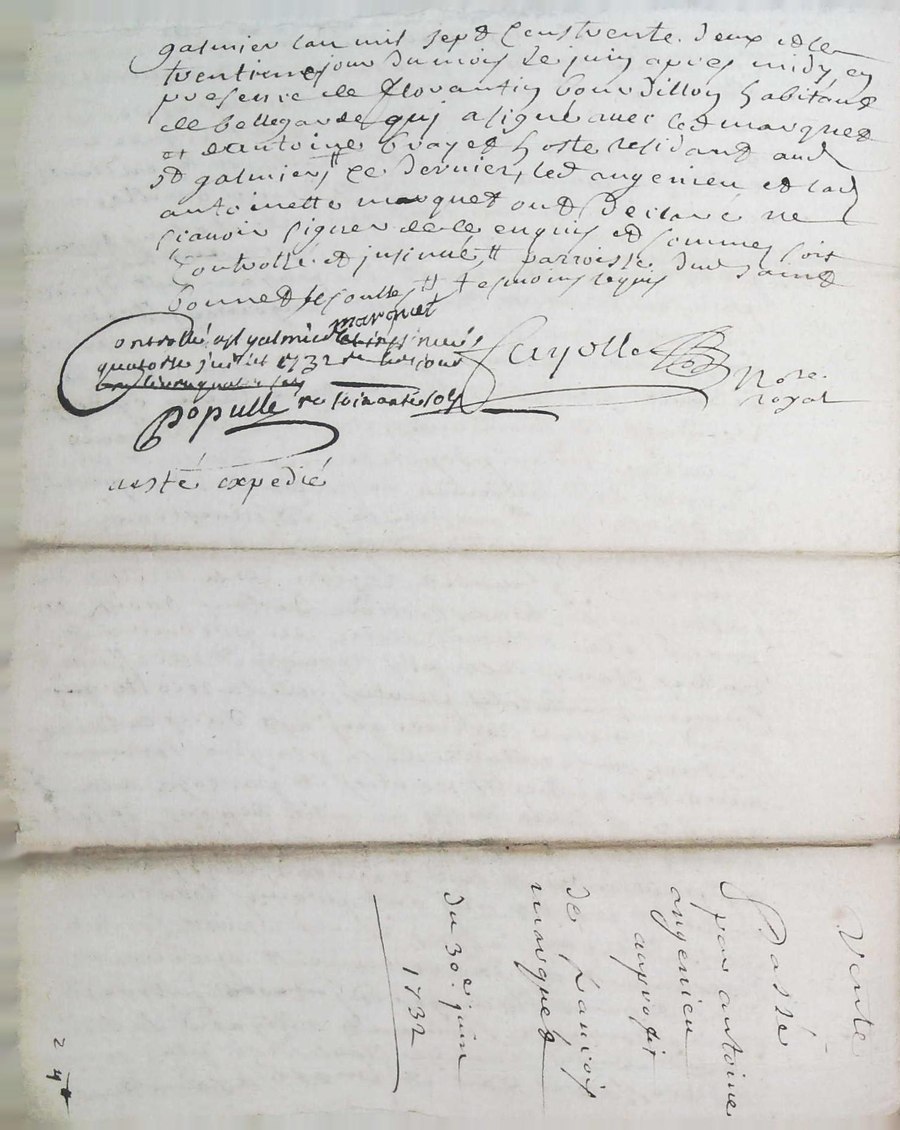 galmier lan mil sept Cens trente deux et le
trentieme jour du mois de juin apres midy en
presence de florantin bourdillon habitant
de bellegarde qui a signé avec led marquet
et dantoine brayet hoste residant aud
st galmier ce dernier, led angenieu et lad
antoinette marquet ont declaré ne
scavoir signer de ce enquis et sommes soit
Controllé et jnsinué parroisse dud saint
bonnet les oulles tesmoins requis
marquet
Controllé a st galmier
quatorse juillet 1732
Cayolle
Nore.
royal
Populle
soixante sols
aesté expedié
Vente
Passé
par antoine
angenieu
auprofit
de francois
marquet
du 30e. juin
1732
2
4